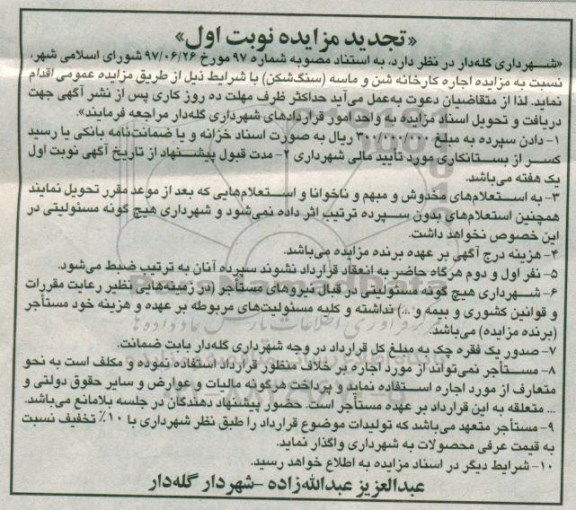 «تجدید مزایده نوبت اول»
«شهرداری گله‌دار در نظر دارد، به استناد مصوبه شماره ۹۷ مورخ ۹۷/۰۶/۲۶ شورای اسلامی شهر،
نسبت به مزایده اجاره کارخانه شن و ماسه (سنگ‌شکن) با شرایط ذیل از طریق مزایده عمومی اقدام
نماید. لذا از متقاضیان دعوت به‌عمل می‌آید حداکثر ظرف مهلت ده روز کاری پس از نشر آگهی جهت
دریافت و تحویل اسناد مزایده به واحد امور قراردادهای شهرداری گله‌دار مراجعه فرمایند».
۱- دادن سپرده به مبلغ ۳۰۰/۰۰۰/۰۰۰ ریال به صورت اسناد خزانه و یا ضمانت‌نامه بانکی یا رسید
کسر از بستانکاری مورد تأیید مالی شهرداری ۲- مدت قبول پیشنهاد از تاریخ آگهی نوبت اول
یک هفته می‌باشد.
۳- به استعلام‌های مخدوش و مبهم و ناخوانا و استعلام‌هایی که بعد از موعد مقرر تحویل نمایند
همچنین استعلام‌های بدون سپرده ترتیب اثر داده نمی‌شود و شهرداری هیچ گونه مسئولیتی در
این خصوص نخواهد داشت.
۴- هزینه درج آگهی بر عهده برنده مزایده می‌باشد.
۵- نفر اول و دوم هرگاه حاضر به انعقاد قرارداد نشوند سپرده آنان به ترتیب ضبط می‌شود.
۶- شهرداری هیچ گونه مسئولیتی در قبال نیروهای مستأجر (در زمینه‌هایی نظیر رعایت مقررات
و قوانین کشوری و بیمه و ...) نداشته و کلیه مسئولیت‌های مربوطه بر عهده و هزینه خود مستأجر
(برنده مزایده) می‌باشد.
۷- صدور یک فقره چک به مبلغ کل قرارداد در وجه شهرداری گله‌دار بابت ضمانت.
۸- مستأجر نمی‌تواند از مورد اجاره بر خلاف منظور قرارداد استفاده نموده و مکلف است به نحو
متعارف از مورد اجاره استفاده نماید و پرداخت هرگونه مالیات و عوارض و سایر حقوق دولتی و
... متعلقه به این قرارداد بر عهده مستأجر است. حضور پیشنهاد دهندگان در جلسه بلامانع می‌باشد.
۹- مستأجر متعهد می‌باشد که تولیدات موضوع قرارداد را طبق نظر شهرداری با ۱۰٪ تخفیف نسبت
به قیمت عرفی محصولات به شهرداری واگذار نماید.
۱۰- شرایط دیگر در اسناد مزایده به اطلاع خواهد رسید.
عبدالعزیز عبدالله‌زاده -شهردار گله‌دار